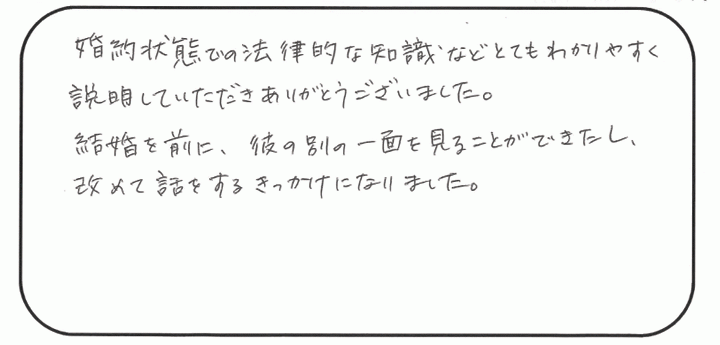 婚約状態での法律的な知識などとてもわかりやすく
説明していただきありがとうございました。
結婚を前に、彼の別の一面を見ることができたし、
改めて話をするきっかけになりました。